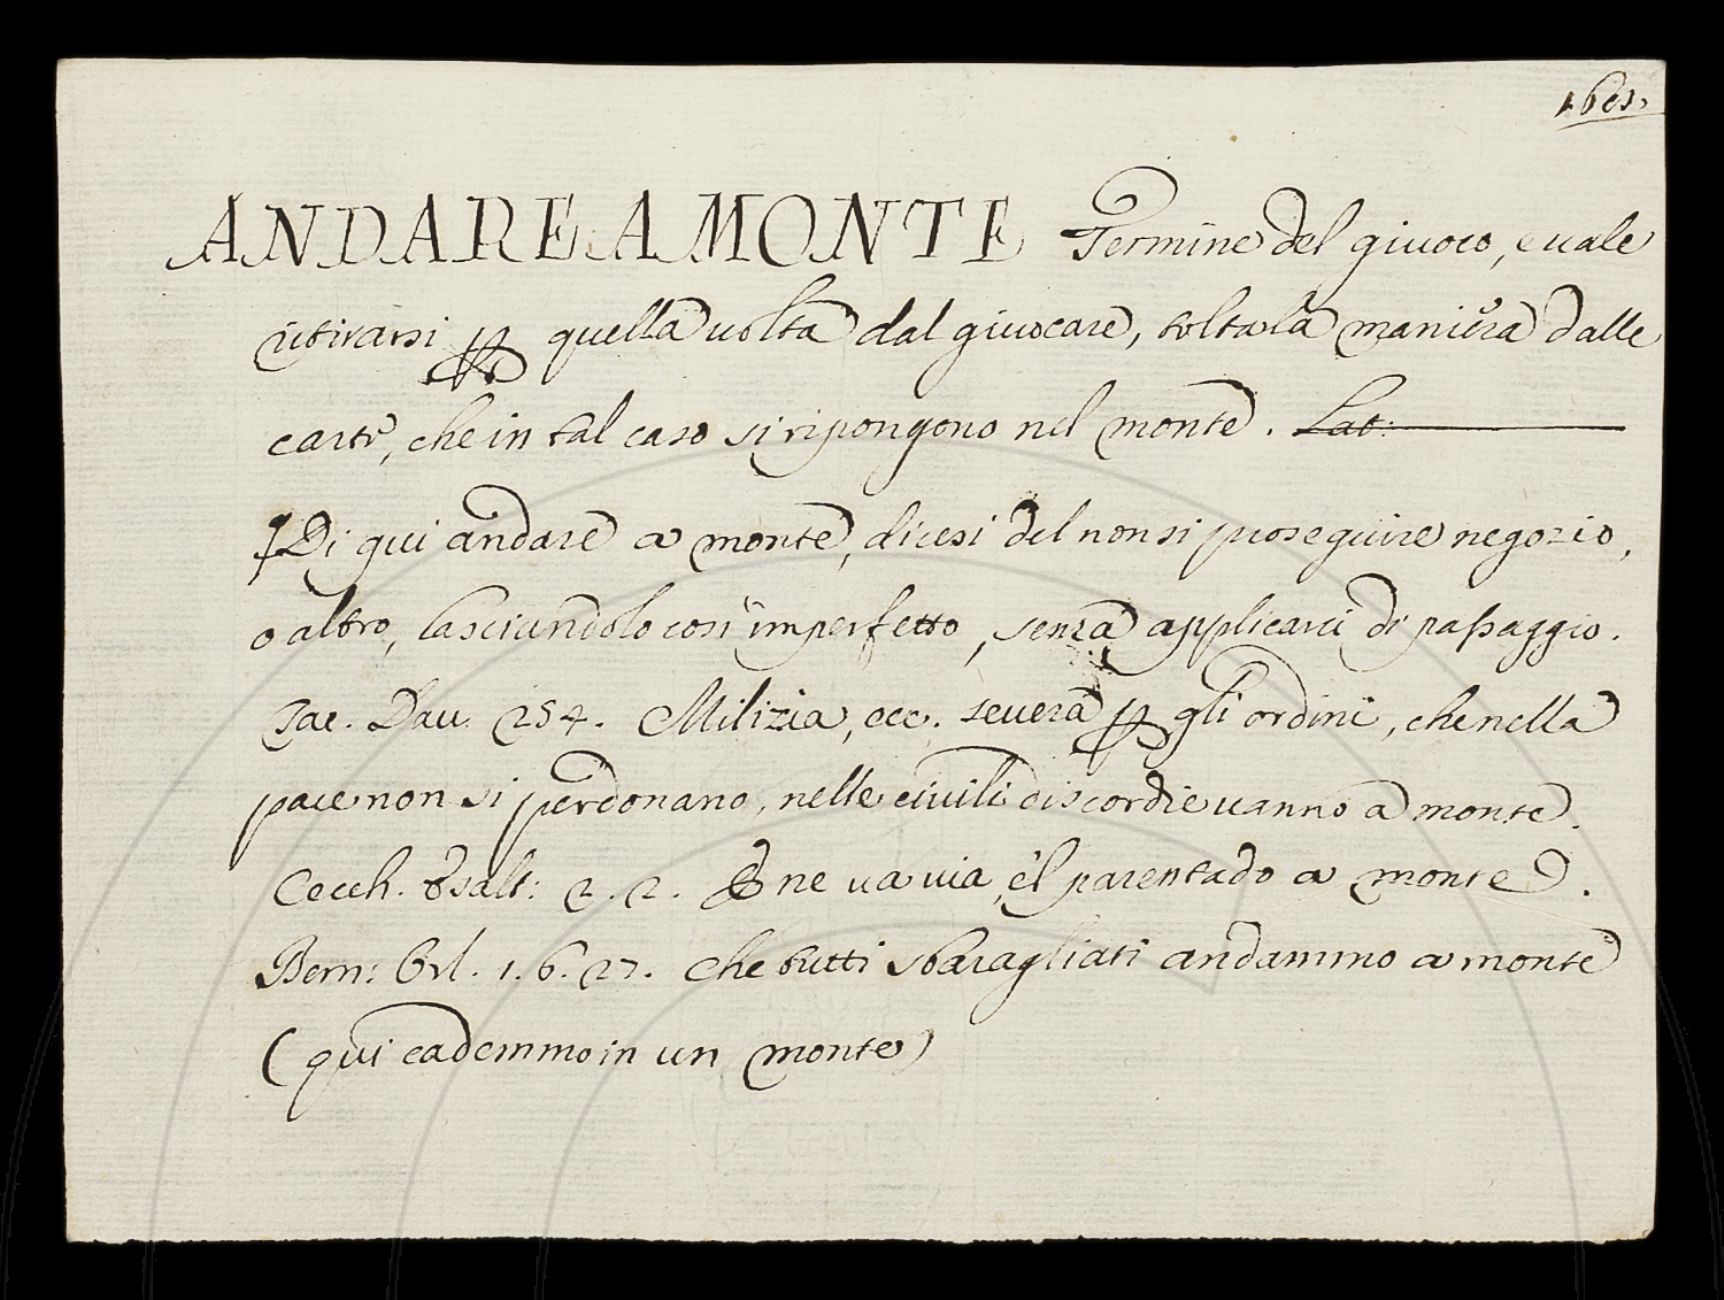 ANDARE A MONTE Termine del giuoco, e vale
ritirarsi ꝑ quella uolta dal giuocare, tolta la maniera dalle
carte, che in tal caso si ripongono nel monte. Lat:
¶Di qui andare a monte, dicesi del non si proseguire negozio,
o altro, lasciandolo così imperfetto, senza applicarci di passaggio.
Tac. Dau. 254. Milizia, ecc. seuera ꝑ gli ordini, che nella
pace non si perdonano, nelle ciuili discordie uanno a monte.
Cecch. Esalt: 2. 2. E ne ua uia, e'l parentado a monte.
Bern: Orl. 1. 6. 27. che tutti sbaragliati andammo a monte
(qui cademmo in un monte)